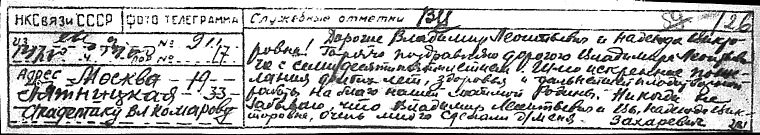 НКСвязи СССР
ФОТО ТЕЛЕГРАММА
Служебные отметки ВЦ
126
из
Адрес Москва 19
Пятницкая 33
Академику ВЛ Комарову
Дорогие Владимир Леонтьевич и Надежда Викто-
ровна! Горячо поздравляю дорогого Владимира Леонтьеви-
ча с семидесятипятилетием и шлю искренние поже-
лания долгих лет, здоровья и дальнейшей плодотворной
работы на благо нашей любимой Родины. Никогда не
забываю, что Владимир Леонтьевич и Вы, Надежда Вик-
торовна, очень много сделали д/меня.
Захаревич